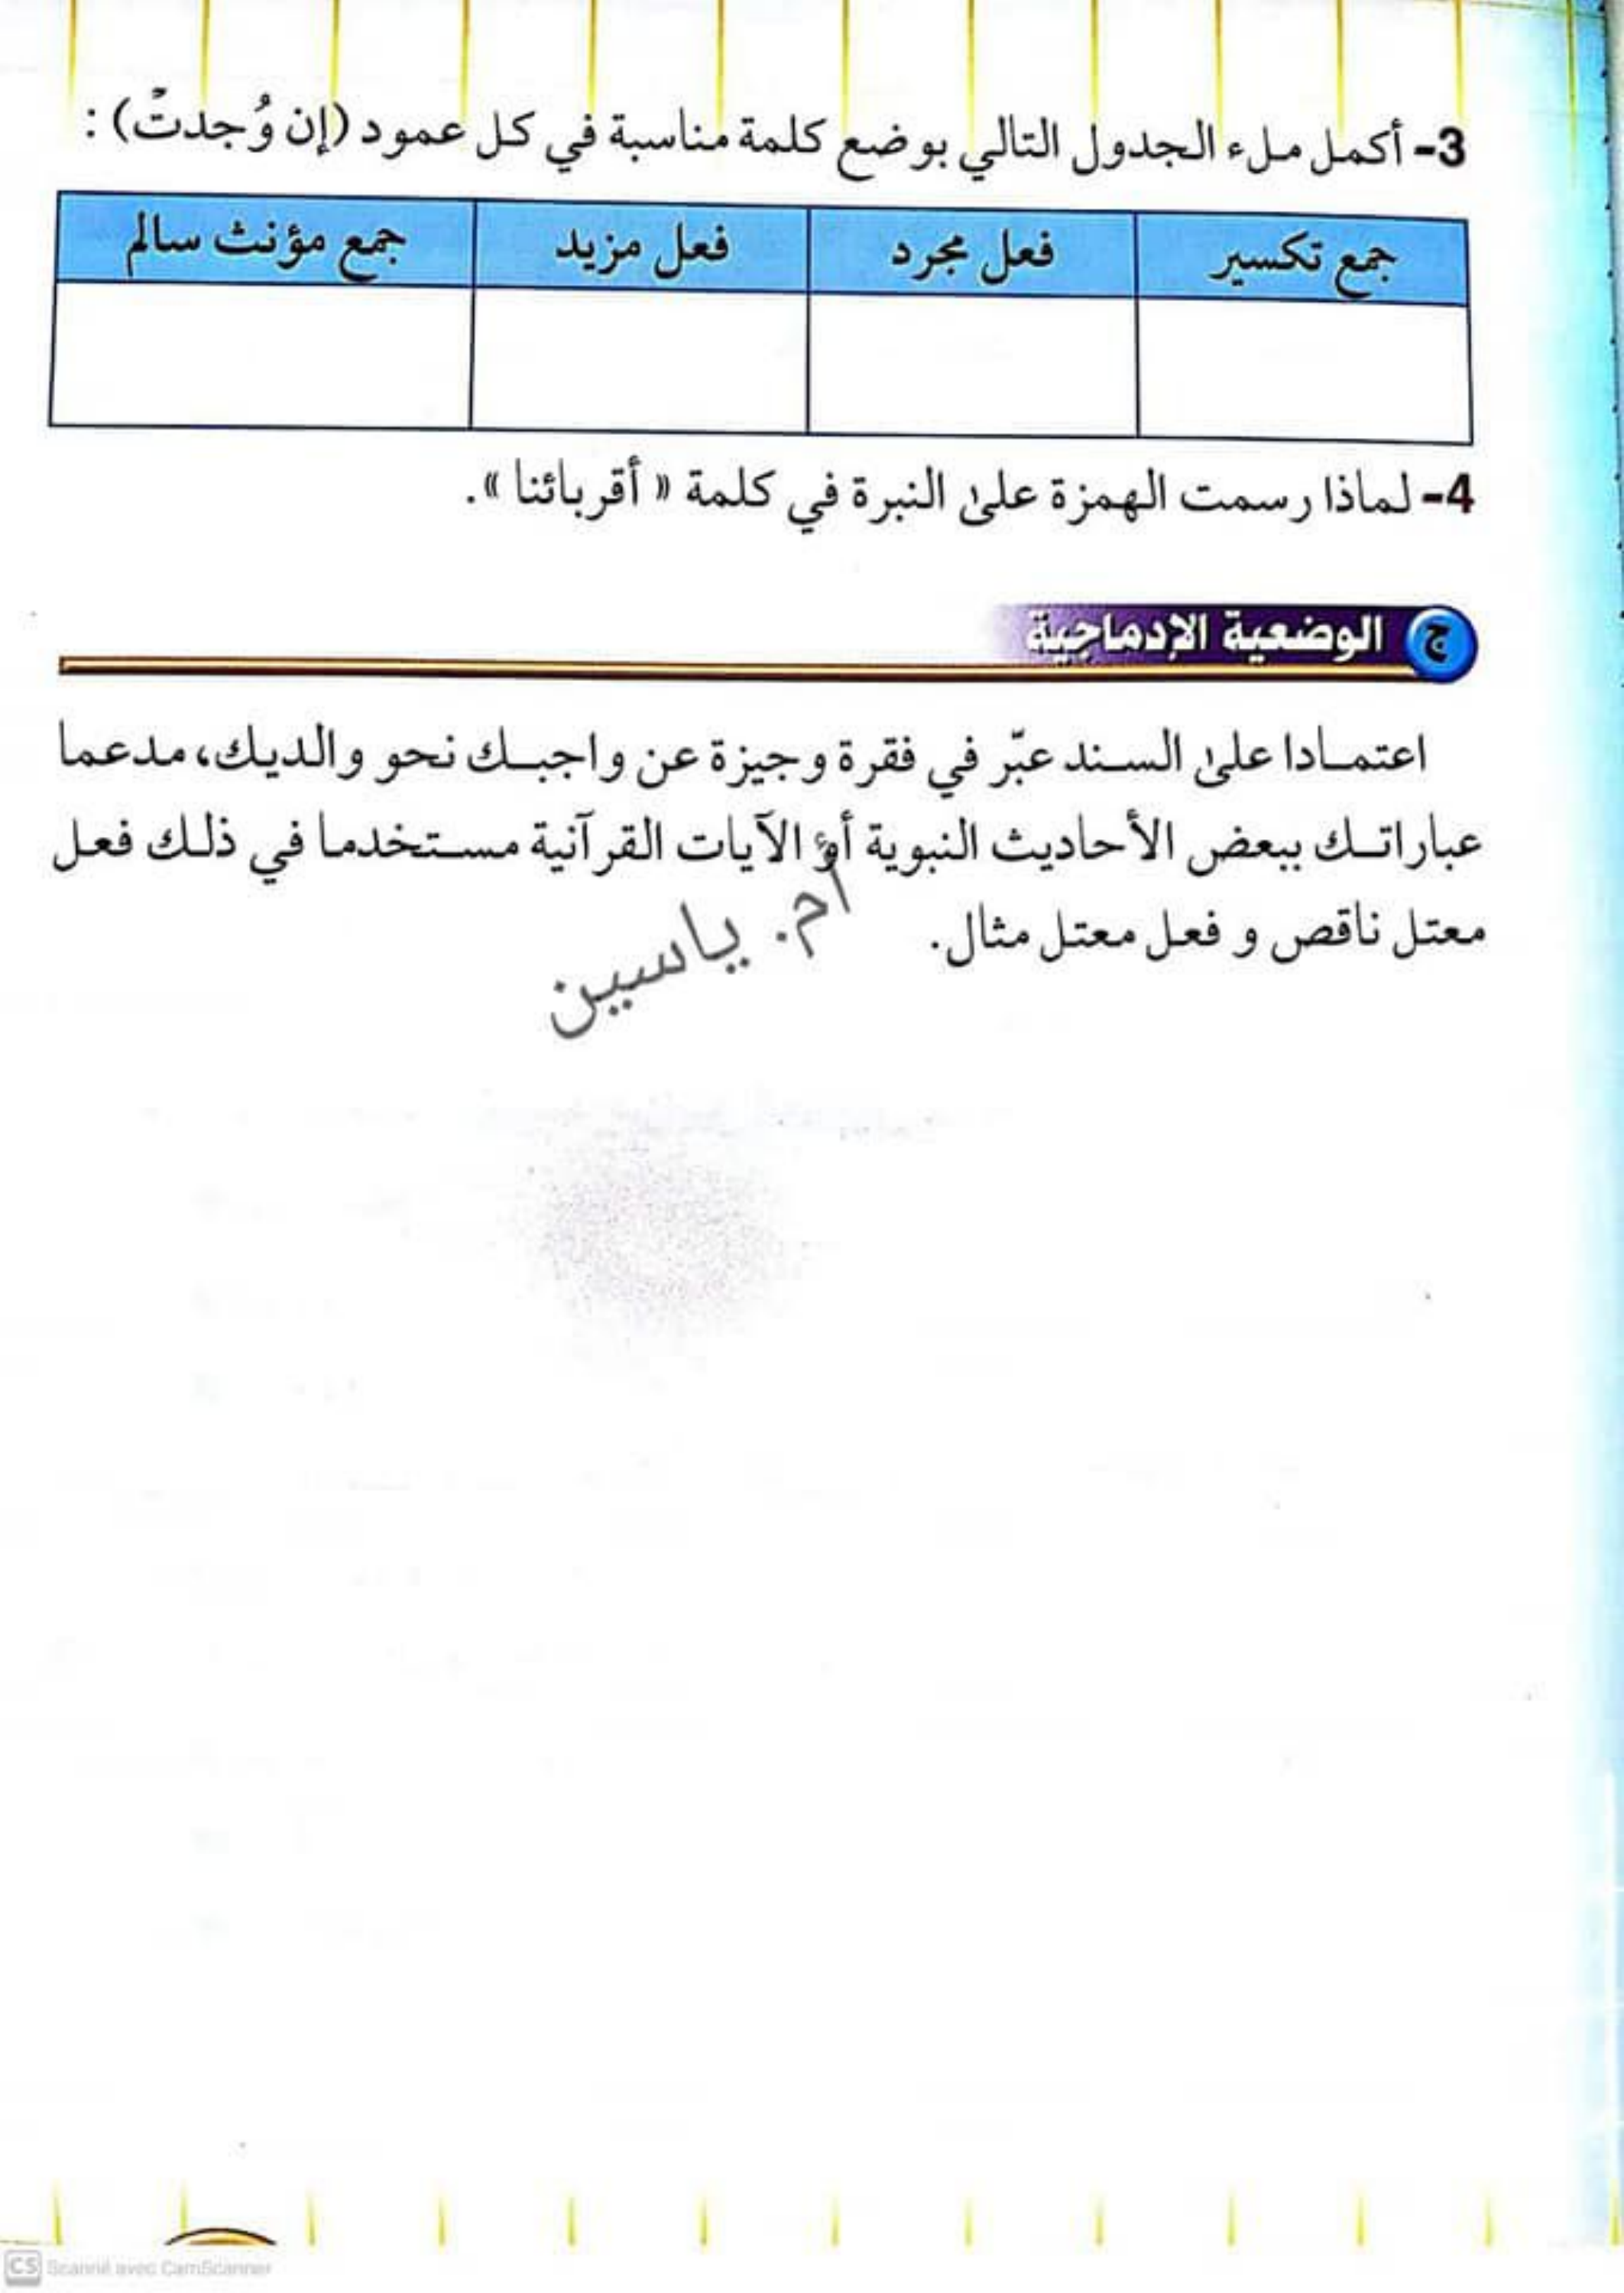 3- أكمل ملء الجدول التالي بوضع كلمة مناسبة في كل عمود (إن وُجدتْ) :
جمع تكسير فعل مجرد فعل مزيد جمع مؤنث سالم
4- لماذا رسمت الهمزة على النبرة في كلمة « أقربائنا ».
ج الوضعية الإدماجية
اعتمـادا على السـند عبّر في فقرة وجيزة عن واجبـك نحو والديك، مدعما
عباراتـك ببعض الأحاديث النبوية أو الآيات القرآنية مسـتخدما في ذلـك فعـل
معتـل ناقص و فعـل معتـل مثال.
أم. ياسين
CS Scanné avec CamScanner